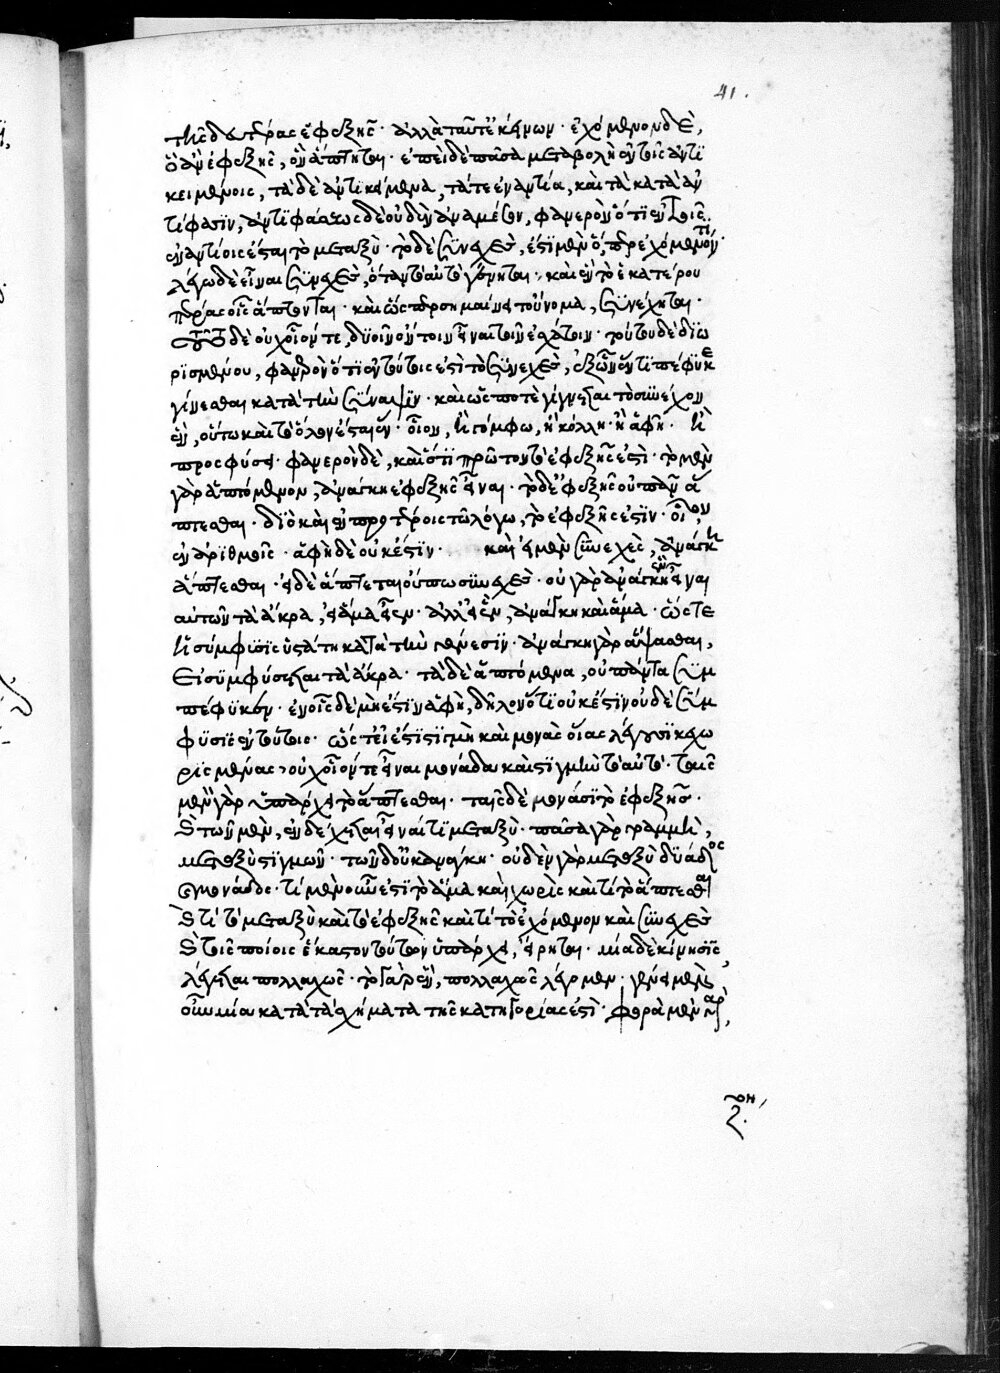 τῆς δευτέρας ἐφεξῆς· ἀλλὰ ταῦτ' ἐκείνων· ἐχόμενον δὲ,
ὃ ἂν ἐφεξῆς, ὂν ἅπτηται· ἐπεὶ δὲ πᾶσα μεταβολὴ ἐν τοῖς ἀντι
κειμένοις, τὰ δὲ ἀντικείμενα, τά τε ἐναντία, καὶ τὰ κατὰ ἀν
τίφασιν, ἀντιφάσεως δὲ οὐδὲν ἀναμέσον, φανερὸν ὅτι ἐν τοῖς
ἐναντίοις ἔσται τὸ μεταξύ· τὸ δὲ συνεχὲς, ἔστι μὲν ὅπερ ἐχόμενόν τι·
λέγω δὲ εἶναι συνεχὲς, ὅταν ταυτὸ γένηται· καὶ ἓν τὸ ἑκατέρου
πέρας οἷς ἅπτονται· καὶ ὥσπερ σημαίνει τοὔνομα, συνέχηται·
τοῦτο δὲ οὐχ οἷόν τε, δυοῖν ὄντοιν εἶναι τοῖν ἐσχάτοιν· τούτου δὲ διω
ρισμένου, φανερὸν ὅτι ἐν τούτοις ἐστὶ τὸ συνεχὲς, ἐξ ὧν ἕν τι πέφυκε
γίνεσθαι κατὰ τὴν σύναψιν· καὶ ὥς ποτε γίγνεται τὸ συνέχον
ἓν, οὕτω καὶ τὸ ὅλον ἔσται ἕν· οἷον, ἢ γόμφω, ἢ κόλλη· ἢ ἁφῆ· ἢ
προσφύσει· φανερὸν δὲ, καὶ ὅτι πρῶτον τὸ ἐφεξῆς ἐστὶ· τὸ μὲν
γὰρ ἁπτόμενον, ἀνάγκη ἐφεξῆς εἶναι· τὸ δὲ ἐφεξῆς οὐ πᾶν ἅ
πτεσθαι· διὸ καὶ ἐν προτέροις τῶ λόγω, τὸ ἐφεξῆς ἐστίν· οἷον,
ἐν ἀριθμοῖς· ἁφὴ δὲ οὐκ ἔστιν· καὶ εἰ μὲν συνεχὲς, ἀνάγκη
ἅπτεσθαι· εἰ δὲ ἅπτεται οὔπω συνεχὲς· οὐ γὰρ ἀνάγκη ἓν εἶναι
αὐτῶν τὰ ἄκρα, εἰ ἅμα εἶεν· ἀλλ' εἰ ἓν, ἀνάγκη καὶ ἅμα· ὥστε
ἡ σύμφυσις ὑστάτη κατὰ τὴν γένεσιν· ἀνάγκη γὰρ ἅψασθαι,
εἰ συμφύσεται τὰ ἄκρα· τὰ δὲ ἁπτόμενα, οὐ πάντα συμ
πέφυκεν· ἐν οἷς δὲ μὴ ἔστιν ἁφὴ, δῆλον ὅτι οὐκ ἔστιν οὐδὲ σύμ
φυσις ἐν τούτοις· ὥστ' εἰ ἔστι στιγμὴ καὶ μονὰς οἵας λέγουσι κεχω
ρισμένας· οὐχ οἷόν τε εἶναι μονάδα καὶ στιγμὴν τὸ αὐτό· ταῖς
μὲν γὰρ ὑπάρχει τὸ ἅπτεσθαι· ταῖς δὲ μονάσι τὸ ἐφεξῆς·
καὶ τῶν μὲν, ἐνδέχεται εἶναί τι μεταξὺ· πᾶσα γὰρ γραμμὴ,
μεταξὺ στιγμῶν· τῶν δ' οὐκ ἀνάγκη· οὐδὲν γὰρ μεταξὺ δυάδος
καὶ μονάδος· τί μὲν οὖν ἐστι τὸ ἅμα καὶ χωρὶς καὶ τί τὸ ἅπτεσθαι
καὶ τί τὸ μεταξὺ καὶ τὸ ἐφεξῆς καὶ τί τὸ ἐχόμενον καὶ συνεχὲς
καὶ τοῖς ποίοις ἕκαστον τούτων ὑπάρχει, εἴρηται· μία δὲ κίνησις,
λέγεται πολλαχῶς· τὸ γὰρ ἓν, πολλαχῶς λέγομεν· γένει μὲν
οὖν μία κατὰ τὰ σχήματα τῆς κατηγορίας ἐστὶ· φορὰ μὲν γὰρ,